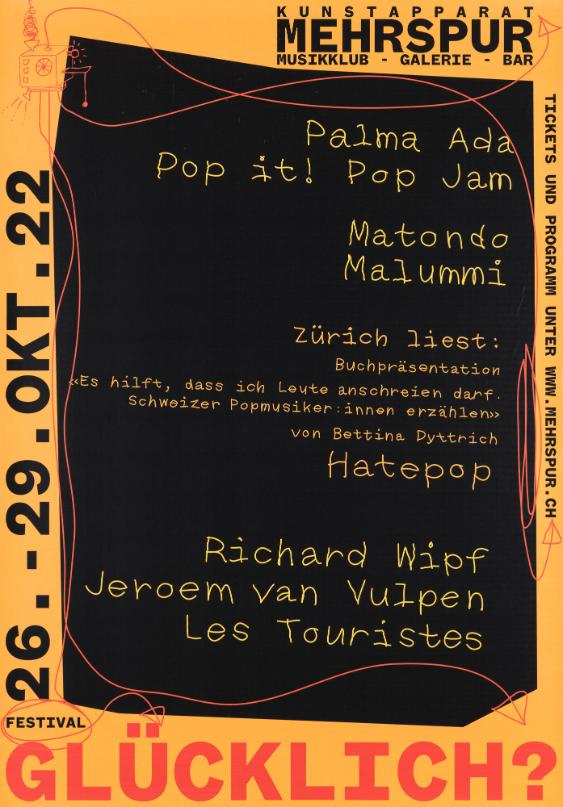 KUNSTAPPARAT
MEHRSPUR
MUSIKKLUB - GALERIE - BAR
TICKETS UND PROGRAMM UNTER WWW.MEHRSPUR.CH
26.-29.OKT.22
Palma Ada
Pop it! Pop Jam
Matondo
Malummi
Zürich liest:
Buchpräsentation
«Es hilft, dass ich Leute anschreien darf.
Schweizer Popmusiker:innen erzählen»
von Bettina Dyttrich
Hatepop
Richard Wipf
Jeroem van Vulpen
Les Touristes
FESTIVAL
GLÜCKLICH?